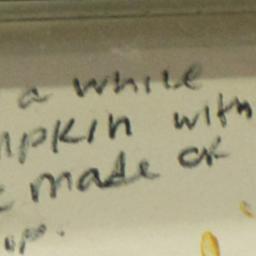 a while
mpkin with
made ok